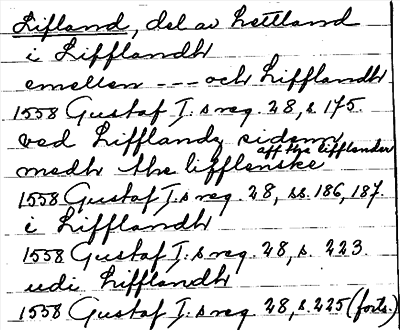 Lifland, del av Lettland
i Lifflandh
emellen --- och Lifflandh
1558 Gustaf I.s reg. 28, s. 175.
ved Lifflandz sidenn
aff the lifflender
medh the lifflenske
1558 Gustaf I.s reg. 28, ss. 186, 187.
i Lifflandh
1558 Gustaf I.s reg. 28, s. 223.
udi Lifflandh
1558 Gustaf I.s reg. 28, s. 225 (forts.)